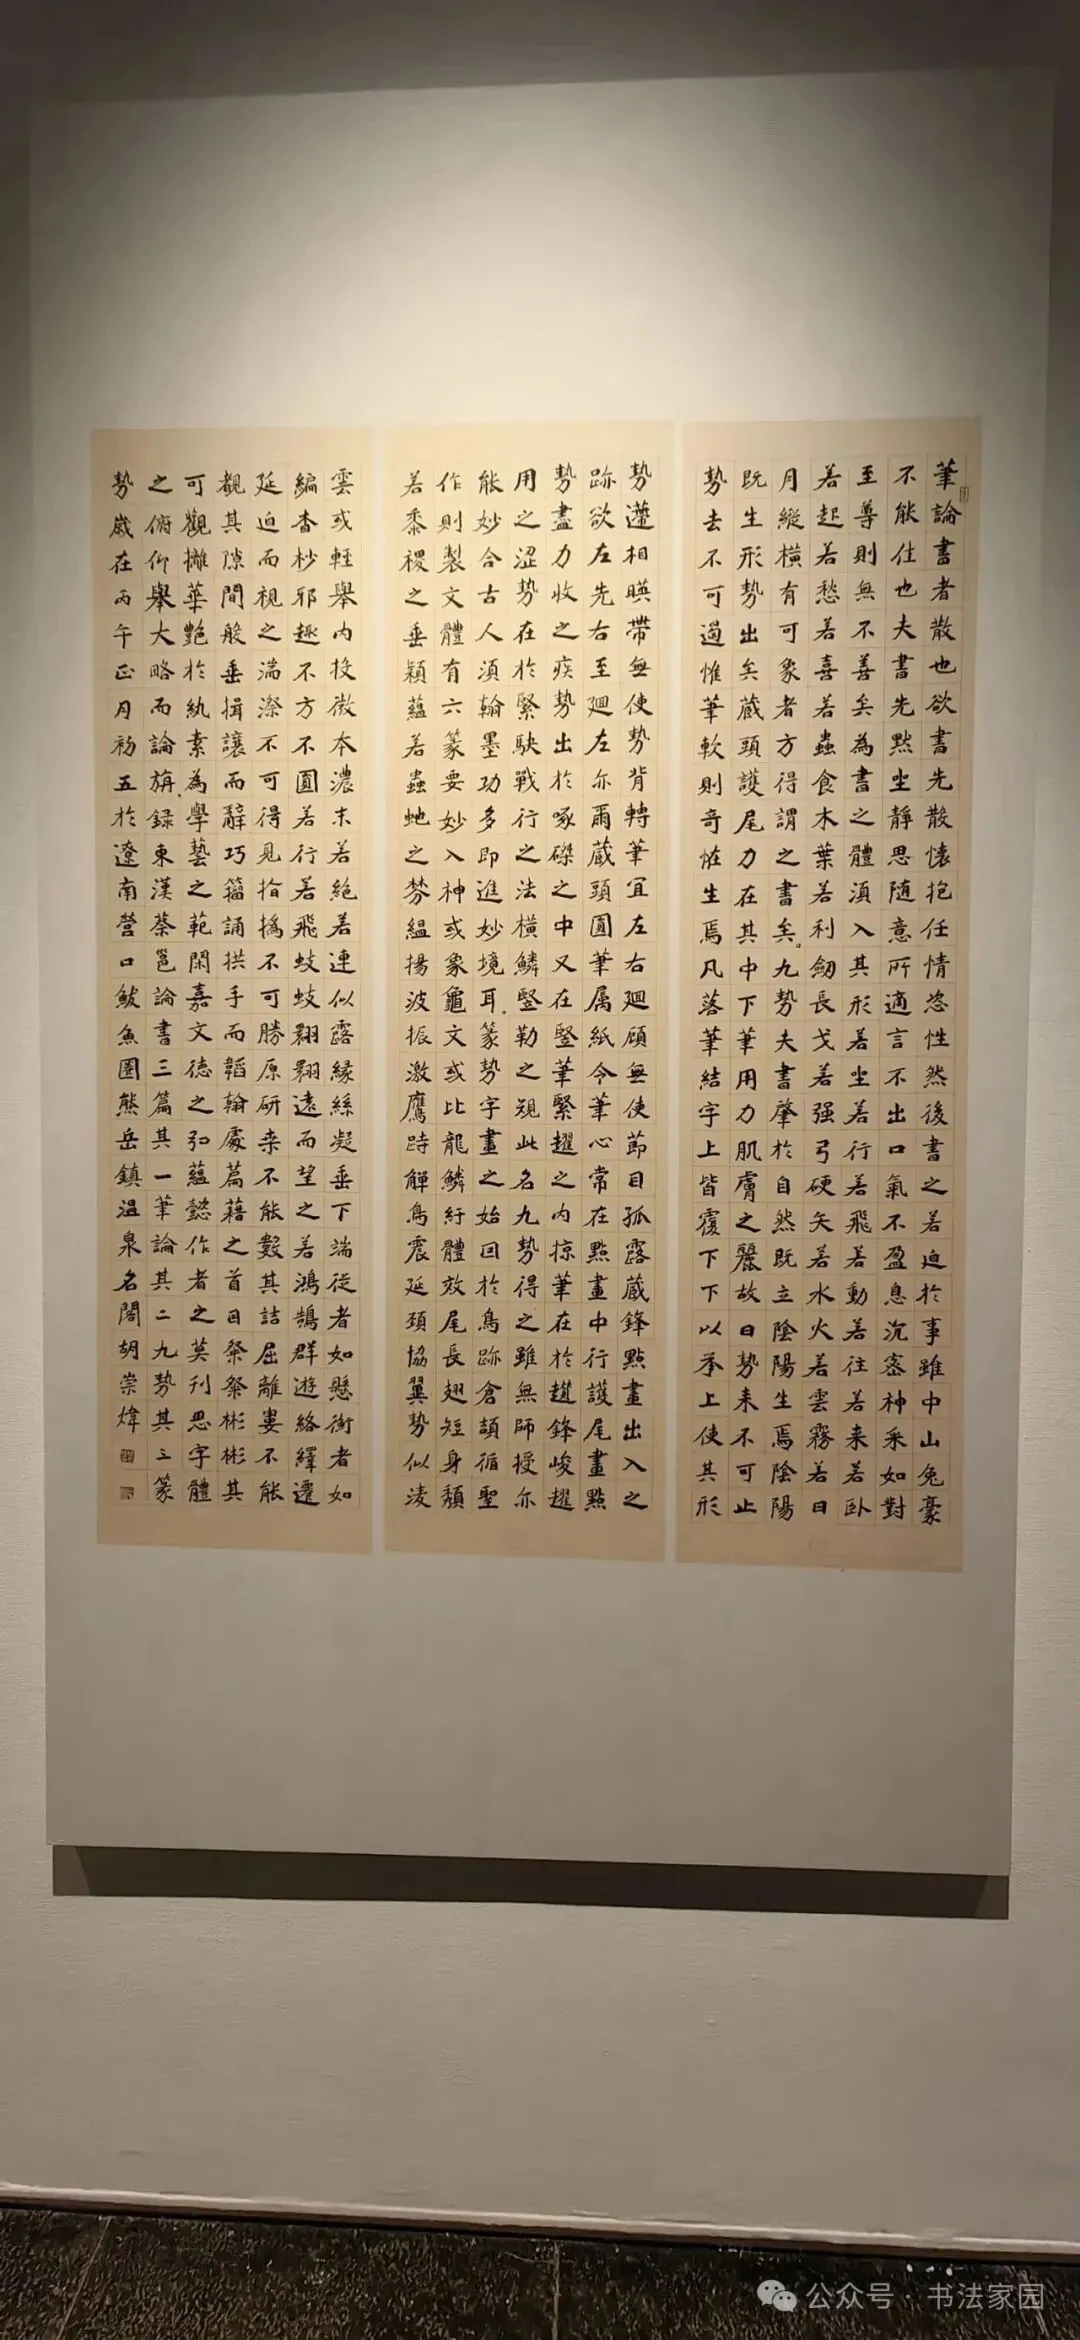 筆論書者散也欲書先散懷抱任情恣性然後書之若迫於事雖中山兔豪
不能佳也夫書先默坐靜思随意所適言不出口氣不盈息沉密神采如對
至尊則無不善矣為書之體須入其形若坐若行若飛若動若往若来若卧
若起若愁若喜若蟲食木葉若利劒長戈若强弓硬矢若水火若雲霧若日
月縱横有可象者方得謂之書矣九勢夫書肇於自然既立陰陽生焉陰陽
既生形勢出矣蔵頭護尾力在其中下筆用力肌膚之麗故曰勢来不可止
勢去不可遏惟筆軟則奇恠生焉凡落筆結字上皆覆下下以承上使其形
勢遞相暎帶無使勢背轉筆宜左右廻頋無使節目孤露蔵鋒點畫出入之
跡欲左先右至廻左亦爾蔵頭圓筆属紙令筆心常在點畫中行護尾畫點
勢盡力收之疾勢出於啄磔之中又在竪筆緊趯之內掠筆在於趲鋒峻趯
用之澀勢在於緊駃戰行之法横鱗竪勒之規此名九勢得之雖無師授亦
能妙合古人須翰墨功多即進妙境耳篆勢字畫之始因於鳥跡倉頡循聖
作則製文體有六篆要妙入神或象龜文或比龍鱗紆體效尾長翅短身頹
若黍稷之垂穎蘊若蟲虵之棼緼揚波振激鷹跱鳥震延頚協翼勢似淩
雲或輕舉內投微本濃末若絶若連似露縁絲凝垂下端從者如懸衡者如
編杳杪邪趣不方不圓若行若飛蚑蚑翾翾遠而望之若鴻鵠群遊絡繹遷
延迫而視之湍漈不可得見指撝不可勝原研桒不能數其詰屈離婁不能
覩其隙間般垂揖讓而辭巧籀誦拱手而韜翰處篇藉之首目粲粲彬彬其
可觀摛華艶於紈素為學藝之範閑嘉文徳之弘蘊懿作者之莫刊思字體
之俯仰舉大略而論旃録東漢蔡邕論書三篇其一筆論其二九勢其三篆
勢歲在丙午正月初五於遼南營口鮁魚圈熊岳鎮温泉名閣胡崇煒
公众号·书法家园